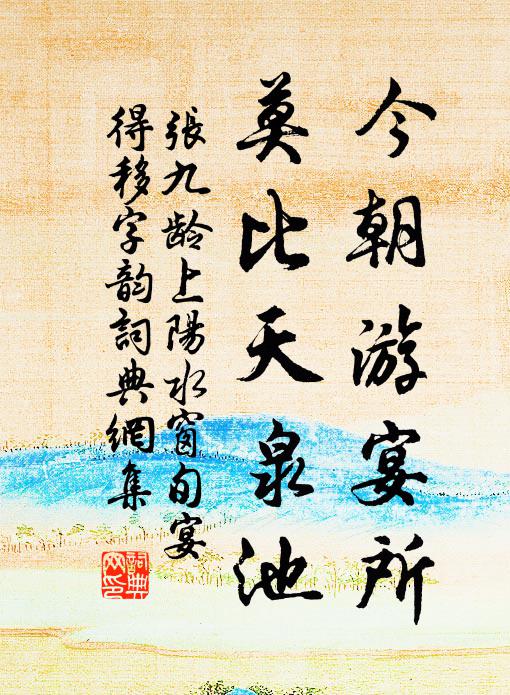 今朝游宴所
莫比天泉池
張九龄上陽水窗旬宴
得移字韵詞典網集
詞典網印